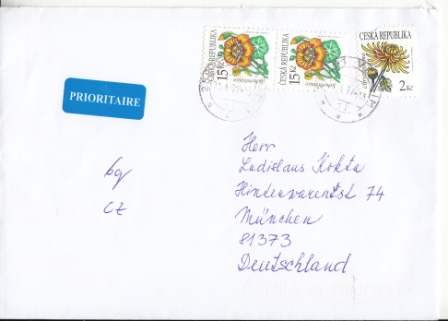 ČESKÁ REPUBLIKA
15 Kč
ČESKÁ REPUBLIKA
15 Kč
ČESKÁ REPUBLIKA
2 Kč
PRIORITAIRE
bq
CZ
Herr
Ladislaus Kokta
Hinterwarentst 74
München
81373
Deutschland